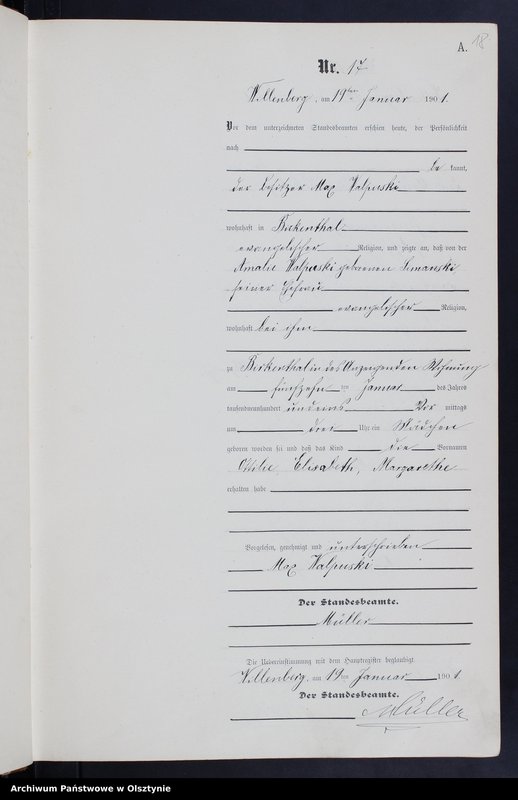 A. 18
Nr. 17
Willenberg, am 19ten Januar 1901.
Vor dem unterzeichneten Standesbeamten erschien heute, der Persönlichkeit
nach
be kannt,
der Besitzer Max Walpuski
wohnhaft in Birkenthal
evangelischer Religion, und zeigte an, daß von der
Amalie Walpuski geborenen Simanski
seiner Ehefrau
evangelischer Religion,
wohnhaft bei ihm
zu Birkenthal in des Anzeigenden Wohnung
am fünfzehn ten Januar des Jahres
tausendneunhundert undeins Vor mittags
um drei Uhr ein Mädchen
geboren worden sei und daß das Kind die Vornamen
Ottilie, Elisabeth, Margarethe
erhalten habe
Vorgelesen, genehmigt und unterschrieben
Max Walpuski
Der Standesbeamte.
Müller
Die Uebereinstimmung mit dem Hauptregister beglaubigt.
Willenberg, am 19ten Januar 1901.
Der Standesbeamte.
Müller
Archiwum Państwowe w Olsztynie